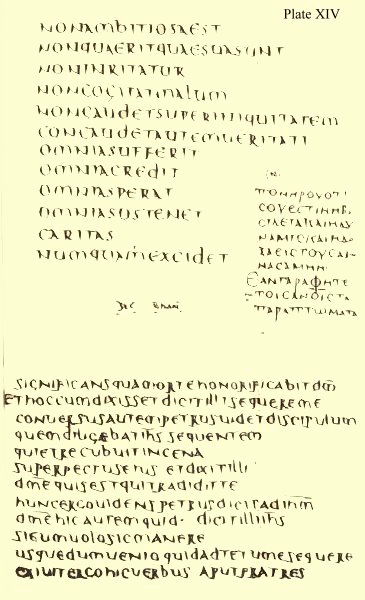 Plate XIV
NONAMBITIOSAEST
NONQUAERITQUAESUASUNT
NONINRITATUR
NONCOGITATMALUM
NONGAUDETSUPERINIQUITATEM
CONGAUDETAUTEMUERITATI
OMNIASUFFERIT
OMNIACREDIT
OMNIASPERAT
OMNIASUSTENET
CARITAS
NUMQUAMEXCIDET
ΠΟΝΗΡΟΥΟΤΙ
CΟΥΕCΤΙΝΗΒ
CΙΛΕΙΑΚΑΙΗΔΥ
ΝΑΜΙCΚΑΙΗΔΟ
ΞΑΕΙCΤΟΥCΑΙΩ
ΝΑCΑΜΗΝ
ΕΑΝΓΑΡΑΦΗΤΕ
ΠΑΡΑΠΤΩΜΑΤΑ
SIGNIFICANSQUAMORTEHONORIFICABITDM̅
ETHOCCUMDIXISSETDICITILLISEQUEREME
CONUERSUSAUTEMPETRUSUIDETDISCIPULUM
QUEMDILIGEBATIH̅S SEQUENTEM
QUIETRECUBUITINCENA
SUPERPECTUSEIUS ETDIXITILLI
DM̅EQUISESTQUITRADIDITTE
HUNCERGOUIDENSPETRUSDICITADIH̅M
DM̅EHICAUTEMQUID· DICITILLIIH̅S
SIEUMUOLOSICMANERE
USQUEDUMUENIOQUIDADTETUMESEQUERE
EXIUITERGOHICUERBUS APUTFRATRES